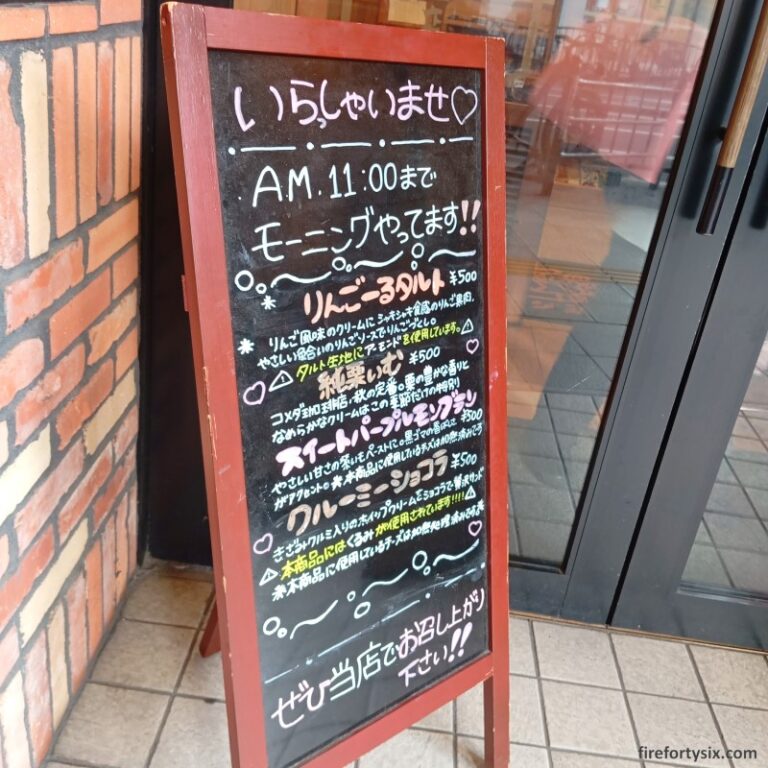 いらっしゃいませ♡
A.M. 11:00まで
モーニングやってます!!
りんごーるタルト ¥500
りんご風味のクリームにシャキシャキ食感のりんご果肉。
やさしい色合いのりんごソースでりんごづくし。
⚠タルト生地にアーモンドを使用しています。⚠
純栗いむ ¥500
コメダ珈琲店、秋の定番。栗の豊かな香りと
なめらかなクリームはこの季節だけの特別
スイートパープルモンブラン ¥500
やさしい甘さの紫いもペーストに。黒ゴマの香ばしさ
がアクセント。※本商品に使用しているチーズは加熱済みです
クルーミーショコラ ¥500
きざみクルミ入りのホイップクリームをショコラで贅沢サンド
⚠本商品にはくるみが使用されています!!!!⚠
※本商品に使用しているチーズは加熱処理済みです※
ぜひ当店でお召し上がり
下さい!!
firefortysix.com